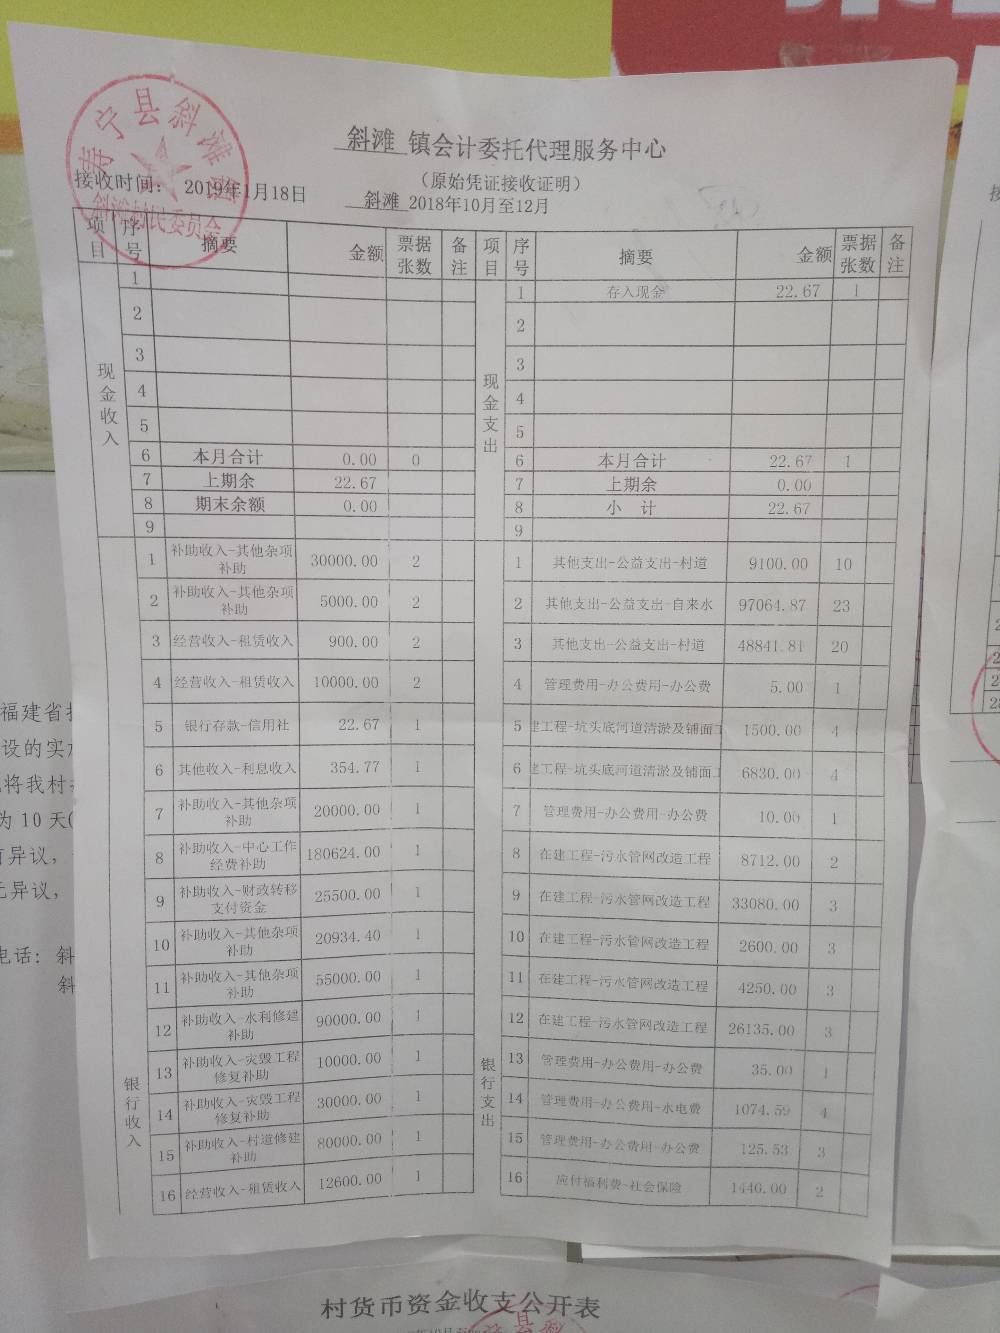 斜滩 镇会计委托代理服务中心
(原始凭证接收证明)
接收时间: 2019年1月18日
斜滩 2018年10月至12月
寿宁县斜滩镇
斜滩村民委员会
项目 序号 摘要 金额 票据张数 备注 项目 序号 摘要 金额 票据张数 备注
现金收入 1 现金支出 1 存入现金 22.67 1
2 2
3 3
4 4
5 5
6 本月合计 0.00 0 6 本月合计 22.67 1
7 上期余 22.67 7 上期余 0.00
8 期末余额 0.00 8 小 计 22.67
9 9
银行收入 1 补助收入-其他杂项补助 30000.00 2 银行支出 1 其他支出-公益支出-村道 9100.00 10
2 补助收入-其他杂项补助 5000.00 2 2 其他支出-公益支出-自来水 97064.87 23
3 经营收入-租赁收入 900.00 2 3 其他支出-公益支出-村道 48841.81 20
4 经营收入-租赁收入 10000.00 2 4 管理费用-办公费用-办公费 5.00 1
5 银行存款-信用社 22.67 1 5 建工程-坑头底河道清淤及铺面工 1500.00 4
6 其他收入-利息收入 354.77 1 6 建工程-坑头底河道清淤及铺面工 6830.00 4
7 补助收入-其他杂项补助 20000.00 1 7 管理费用-办公费用-办公费 10.00 1
8 补助收入-中心工作经费补助 180624.00 1 8 在建工程-污水管网改造工程 8712.00 2
9 补助收入-财政转移支付资金 25500.00 1 9 在建工程-污水管网改造工程 33080.00 3
10 补助收入-其他杂项补助 20934.40 1 10 在建工程-污水管网改造工程 2600.00 3
11 补助收入-其他杂项补助 55000.00 1 11 在建工程-污水管网改造工程 4250.00 3
12 补助收入-水利修建补助 90000.00 1 12 在建工程-污水管网改造工程 26135.00 3
13 补助收入-灾毁工程修复补助 10000.00 1 13 管理费用-办公费用-办公费 35.00 1
14 补助收入-灾毁工程修复补助 30000.00 1 14 管理费用-办公费用-水电费 1074.59 4
15 补助收入-村道修建补助 80000.00 1 15 管理费用-办公费用-办公费 125.53 3
16 经营收入-租赁收入 12600.00 1 16 应付福利费-社会保险 1440.00 2
福建省
设的实
将我村
为 10 天(
有异议,
无异议,
电话: 斜
斜
村货币资金收支公开表